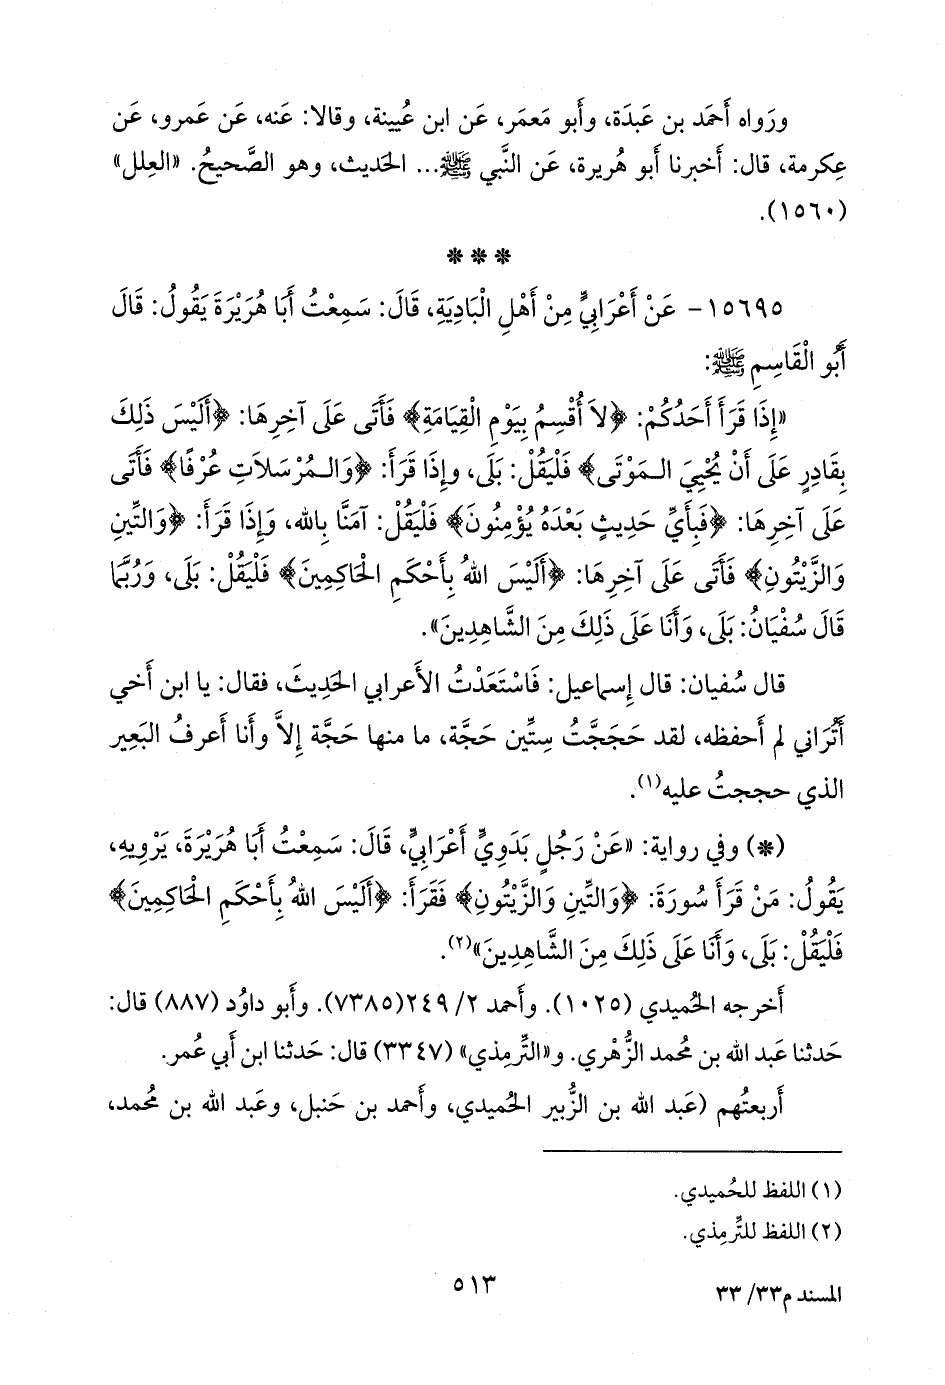 ورَواه أَحمَد بن عَبدَة، وأَبو مَعمَر، عَن ابن عُيينة، وقالا: عَنه، عَن عَمرو، عَن
عِكرمة، قال: أَخبرنا أَبو هُريرة، عَن النَّبي ﷺ... الحَديث، وهو الصَّحيحُ. «العِلل»
(١٥٦٠).
* * *
١٥٦٩٥- عَنْ أَعْرَابِيٍّ مِنْ أَهْلِ الْبَادِيَةِ، قَالَ: سَمِعْتُ أَبَا هُرَيْرَةَ يَقُولُ: قَالَ
أَبُو الْقَاسِمِ ﷺ:
«إِذَا قَرَأَ أَحَدُكُمْ: ﴿لاَ أُقْسِمُ بِيَوْمِ الْقِيَامَةِ﴾ فَأَتَى عَلَى آخِرِهَا: ﴿أَلَيْسَ ذَلِكَ
بِقَادِرٍ عَلَى أَنْ يُحْيِيَ المَوْتَى﴾ فَلْيَقُلْ: بَلَى، وَإِذَا قَرَأَ: ﴿وَالمُرْسَلاَتِ عُرْفًا﴾ فَأَتَى
عَلَى آخِرِهَا: ﴿فَبِأَيِّ حَدِيثٍ بَعْدَهُ يُؤْمِنُونَ﴾ فَلْيَقُلْ: آمَنَّا بِالله، وَإِذَا قَرَأَ: ﴿وَالتِّينِ
وَالزَّيْتُونِ﴾ فَأَتَى عَلَى آخِرِهَا: ﴿أَلَيْسَ اللهُ بِأَحْكَمِ الحَاكِمِينَ﴾ فَلْيَقُلْ: بَلَى، وَرُبَّمَا
قَالَ سُفْيَانُ: بَلَى، وَأَنَا عَلَى ذَلِكَ مِنَ الشَّاهِدِينَ».
قال سُفيان: قال إِسماعيل: فَاسْتَعَدْتُ الأَعرابي الحَدِيثَ، فقال: يا ابن أَخي
أَتُرَاني لم أَحفظه، لقد حَجَجَتُ سِتِّين حَجَّة، ما منها حَجَّة إِلاَّ وأَنا أَعرفُ البَعِير
الذي حججتُ عليه(١).
(*) وفي رواية: «عَنْ رَجُلٍ بَدَوِيٍّ أَعْرَابِيٍّ، قَالَ: سَمِعْتُ أَبَا هُرَيْرَةَ، يَرْوِيهِ،
يَقُولُ: مَنْ قَرَأَ سُورَةَ: ﴿وَالتِّينِ وَالزَّيْتُونِ﴾ فَقَرَأَ: ﴿أَلَيْسَ اللهُ بِأَحْكَمِ الحَاكِمِينَ﴾
فَلْيَقُلْ: بَلَى، وَأَنَا عَلَى ذَلِكَ مِنَ الشَّاهِدِينَ»(٢).
أَخرجه الحُميدي (١٠٢٥). وأَحمد ٢/ ٢٤٩(٧٣٨٥). وأَبو داوُد (٨٨٧) قال:
حَدثنا عَبد الله بن مُحمد الزُّهْري. و«التِّرمِذي» (٣٣٤٧) قال: حَدثنا ابن أَبي عُمر.
أَربعتُهم (عَبد الله بن الزُّبير الحُميدي، وأَحمد بن حَنبل، وعَبد الله بن مُحمد،
(١) اللفظ للحُميدي.
(٢) اللفظ للتِّرمِذي.
المسند م٣٣/ ٣٣
٥١٣